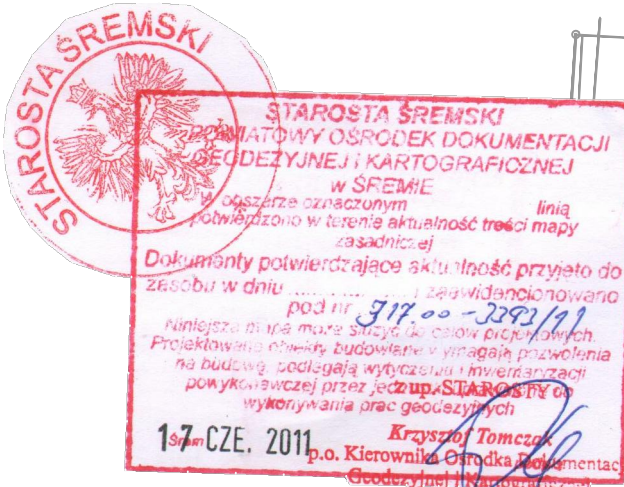 STAROSTA ŚREMSKI
STAROSTA ŚREMSKI
POWIATOWY OŚRODEK DOKUMENTACJI
GEODEZYJNEJ i KARTOGRAFICZNEJ
w ŚREMIE
W obszarze oznaczonym linią
potwierdzono w terenie aktualność treści mapy
zasadniczej
Dokumenty potwierdzające aktualność przyjęto do
zasobu w dniu .................. i zaewidencjonowano
pod nr 3393/11
Niniejsza mapa może służyć do celów projektowych.
Projektowane obiekty budowlane wymagają pozwolenia
na budowę, podlegają wytyczeniu i inwentaryzacji
powykonawczej przez
z up. STAROSTY
wykonywania prac geodezyjnych
Śrem 17 CZE. 2011
Krzysztof Tomczak
p.o. Kierownika Ośrodka Dokumentacj
Geodezyjnej i Kartograficznej